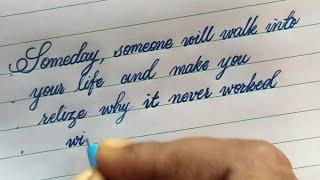 Someday, someone will walk into
your life and make you
relize why it never worked
wi